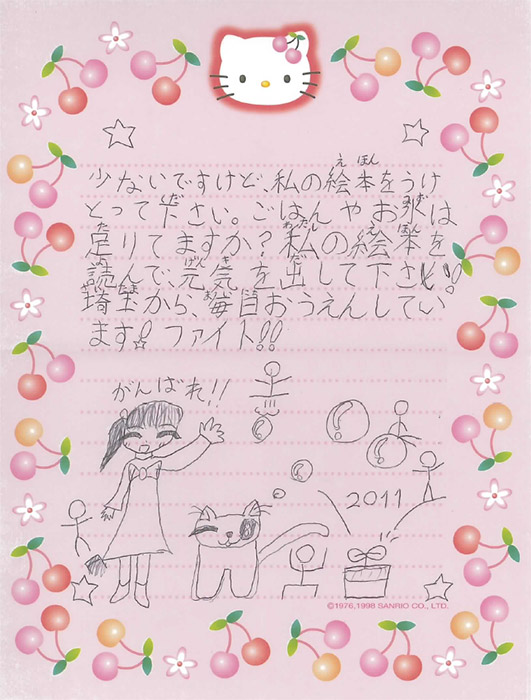 少ないですけど、私の絵本をうけ
とって下さい。ごはんやお水は
足りてますか？私の絵本を
読んで、元気を出して下さい!!
埼玉から、毎日おうえんしてい
ます! ファイト!!
がんばれ!!
2011
©1976,1998 SANRIO CO., LTD.